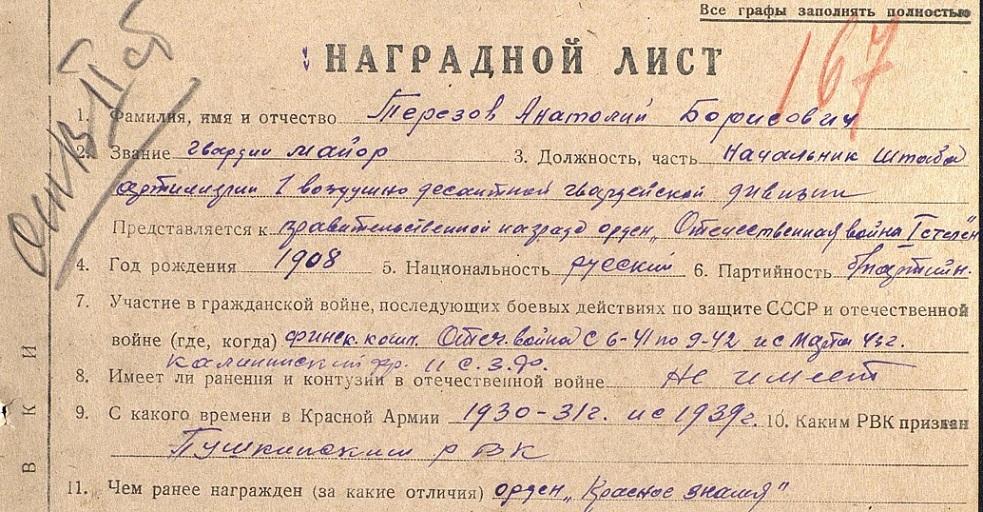 Все графы заполнять полностью
167
НАГРАДНОЙ ЛИСТ
1. Фамилия, имя и отчество Терезов Анатолий Борисович
2. Звание гвардии майор 3. Должность, часть Начальник штаба
артиллерии 1 воздушно десантной гвардейской дивизии
Представляется к правительственной награде орден „Отечественная война I степен"
4. Год рождения 1908 5. Национальность русский 6. Партийность б/партийн.
7. Участие в гражданской войне, последующих боевых действиях по защите СССР и отечественной
войне (где, когда) финск. комп. Отеч. война с 6-41 по 9-42 и с марта 43 г.
Калининский фр. и С.З.фр.
8. Имеет ли ранения и контузии в отечественной войне Не имеет
9. С какого времени в Красной Армии 1930-31 г. и с 1939 г. 10. Каким РВК призван
Пушкинским РВК
11. Чем ранее награжден (за какие отличия) орден „Красное знамя"
ВКИ